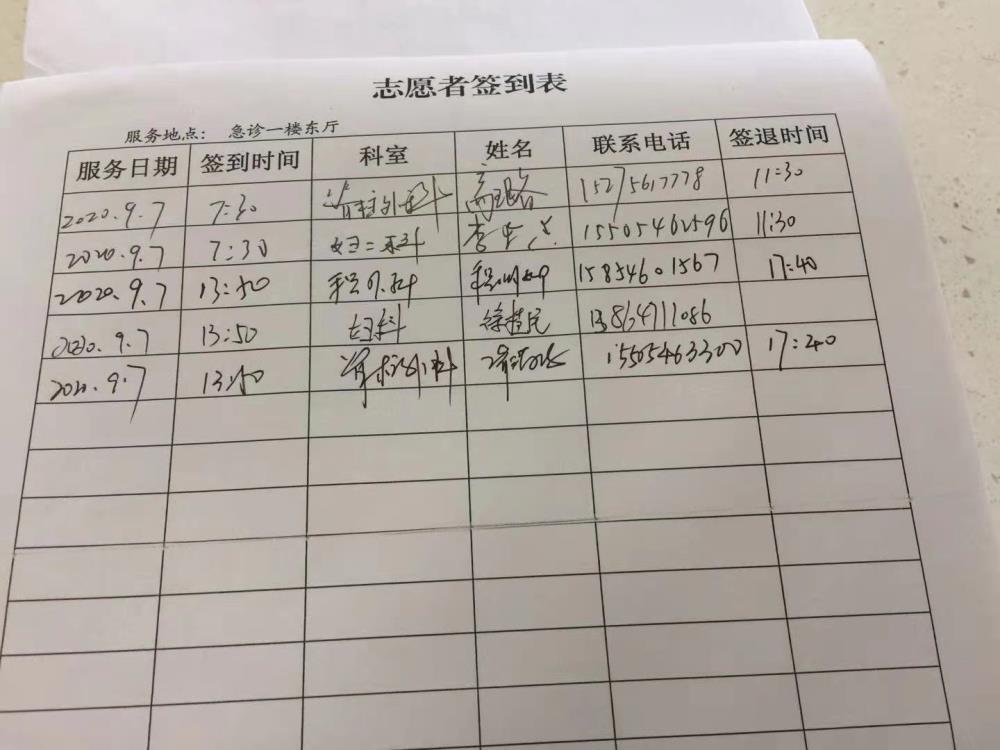 志愿者签到表
服务地点： 急诊一楼东厅
服务日期 签到时间 科室 姓名 联系电话 签退时间
2020.9.7 7:30 脊柱外科 15275617778 11:30
2020.9.7 7:30 妇二科 15505462596 11:30
2020.9.7 13:50 15854601567 17:40
2020.9.7 13:50 妇科 13864711086
2020.9.7 13:50 脊柱外科 15505463300 17:40